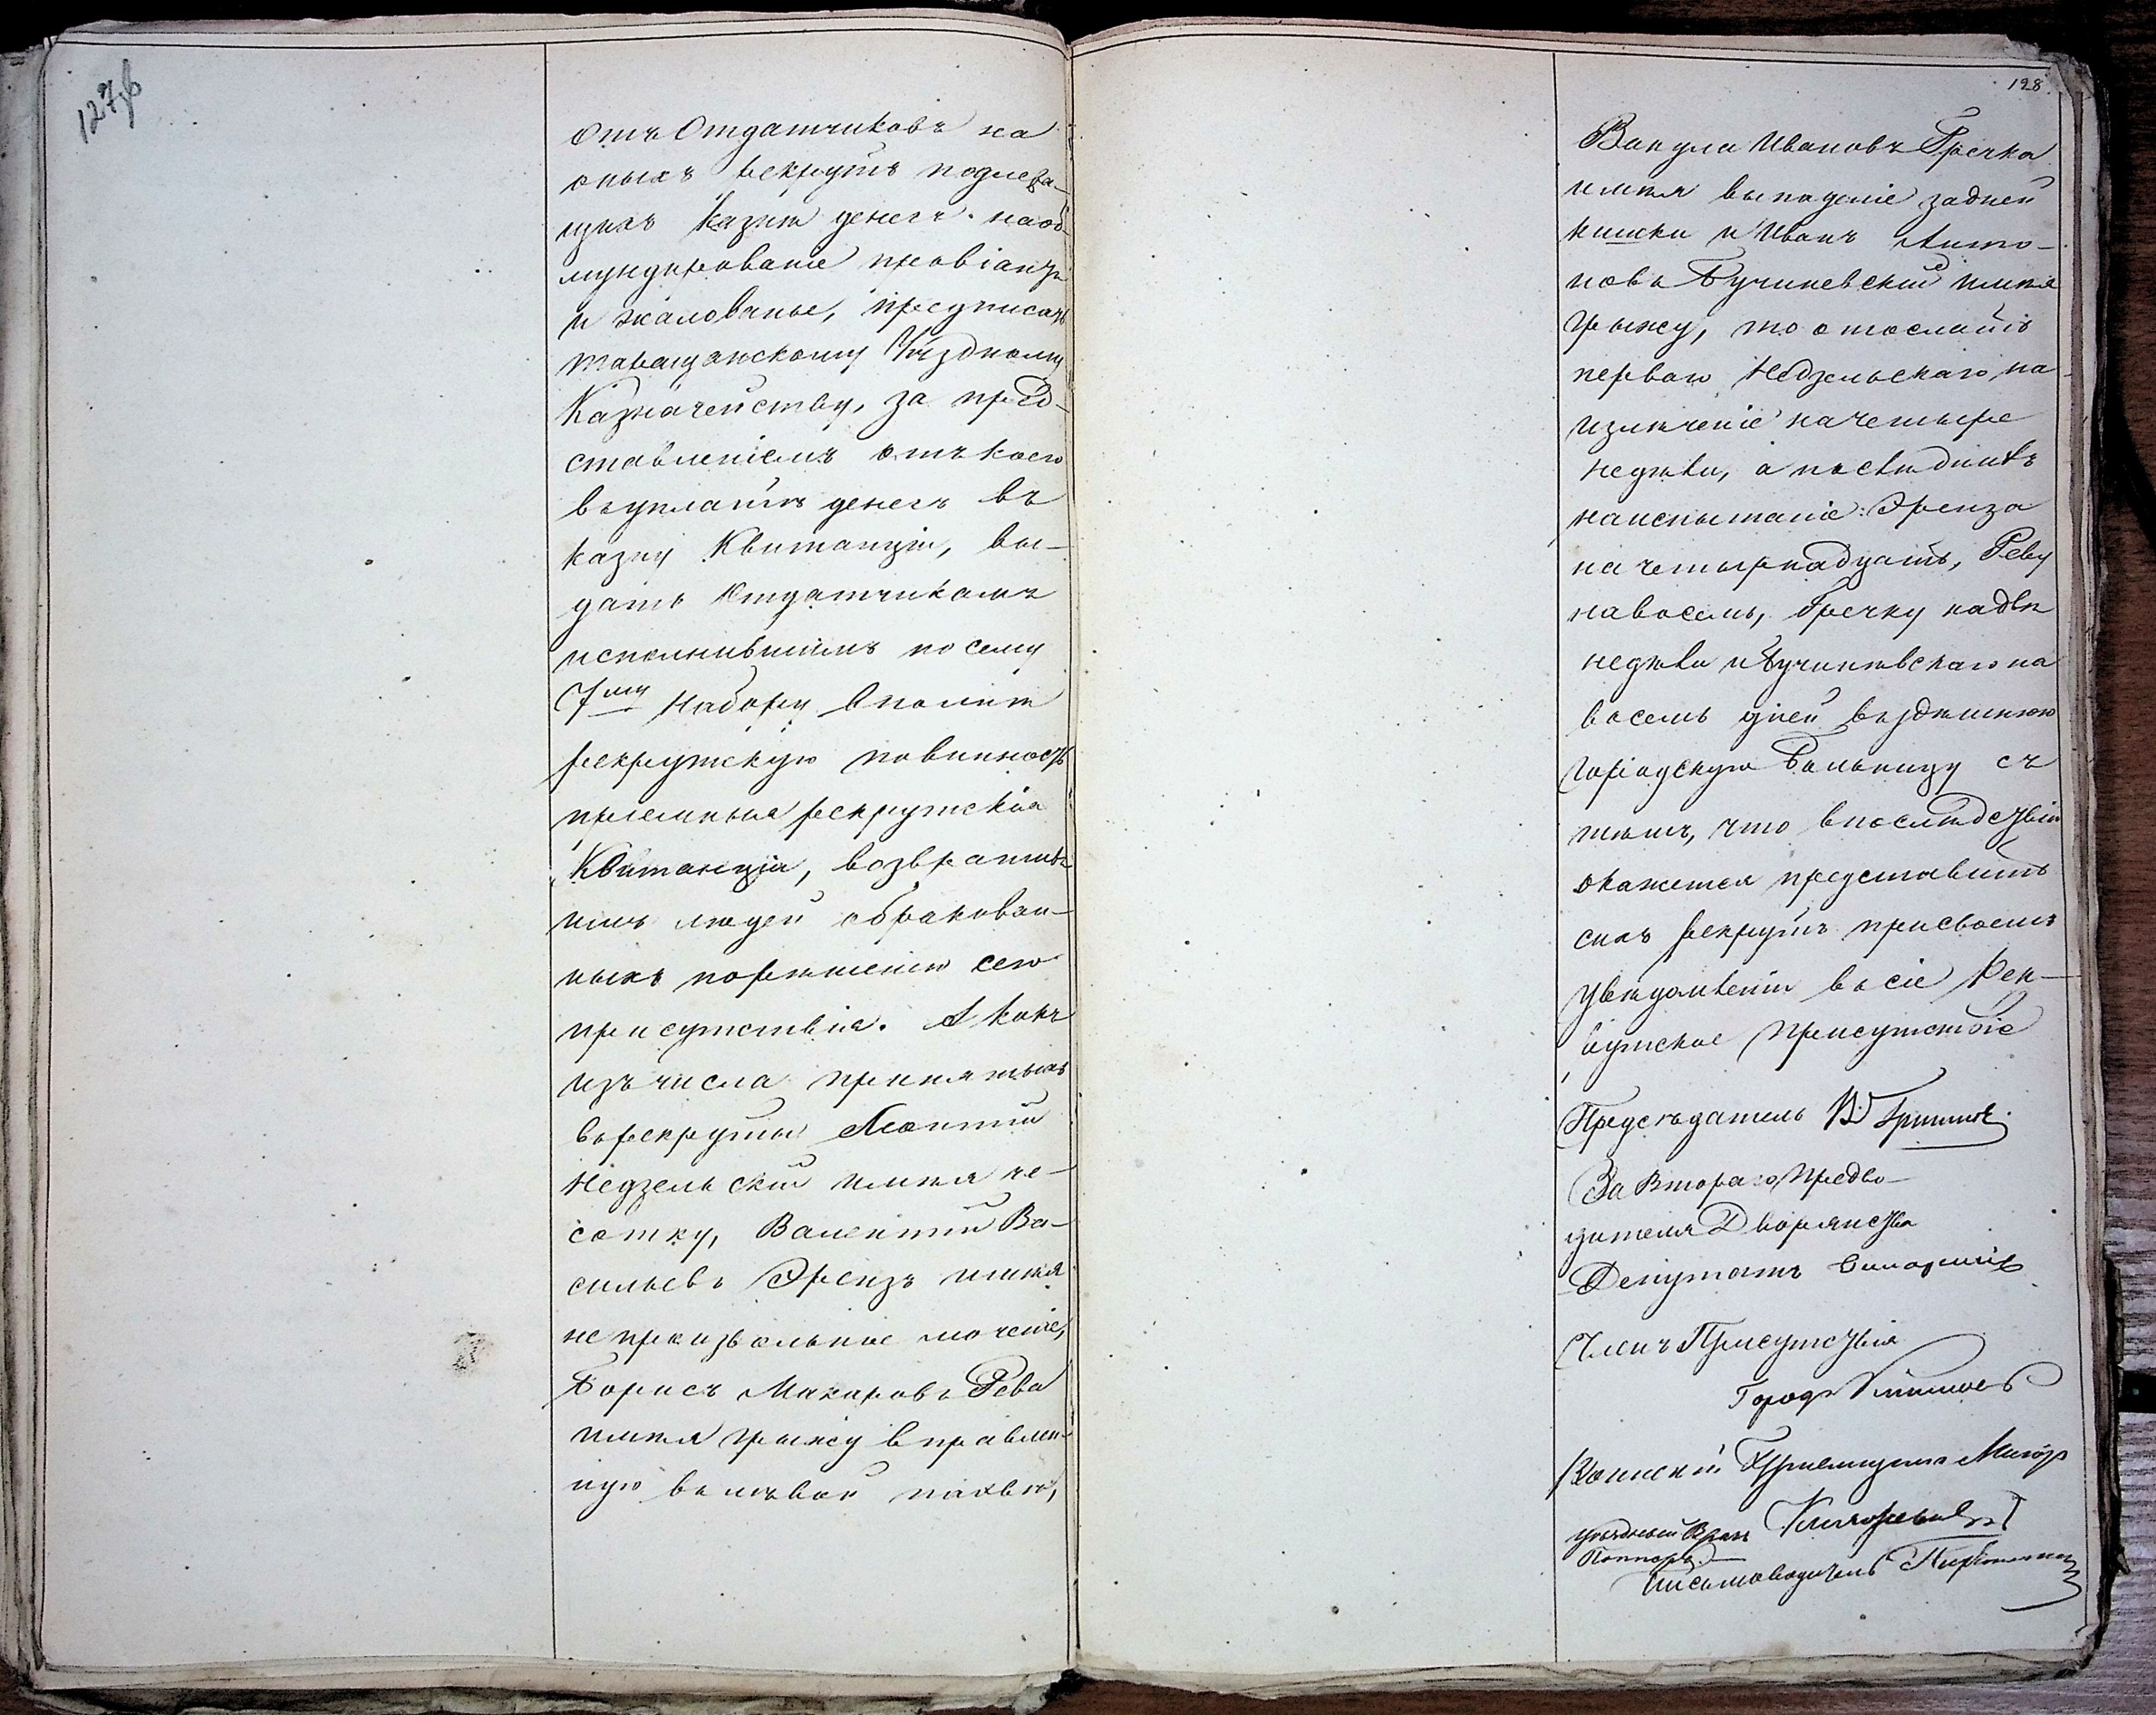 127об
отъ Отдатчиковъ на
оныхъ рекрутъ подлежа-
щихъ Казнѣ денегъ на об-
мундированіе провіантъ
и жалованье, предписать
Таращанскому Уѣздному
Казначейству, за пред-
ставленіемъ отъ коего
въ уплатѣ денегъ въ
казну Квитанціи, вы-
дать Отдатчикамъ
исполнившимъ по сему
7му Набору вполнѣ
рекрутскую повинность
пріемныя рекрутскія
Квитанціи, возвратить
имъ людей обракован-
ныхъ по рѣшенію сего
присутствія. А какъ
изъ числа принятыхъ
въ рекруты Леонтій
Недзельскій имѣя че-
сотку, Валентій Ва-
сильевъ Эрензъ имѣя
непроизвольное моченіе,
Борисъ Макаровъ Рева
имѣя грыжу вправлен-
ную въ лѣвой пахвѣ,
128
Вакула Ивановъ Гречка
имѣя выпаденіе задней
кишки и Иванъ Анто-
новъ Бучиневскій имѣя
грыжу, то отослать
перваго Недзельскаго на
излеченіе на четыре
недѣли, а послѣднихъ
на испытаніе: Эренза
на четырнадцать, Реву
на восемь, Гречку на двѣ
недѣли и Бучиневскаго на
восемь дней въ здѣшнюю
городскую Больницу съ
тѣмъ, что впослѣдствіи
окажется представить
сихъ рекрутъ при своемъ
увѣдомленіи въ сіе Рек-
рутское Присутствіе
Предсѣдатель В
За Втораго Предво-
дителя Дворянства
Депутатъ
Членъ Присутствія
Город
Воинскій Пріемщикъ Маіоръ
уѣздный Врачъ
Письмоводитель